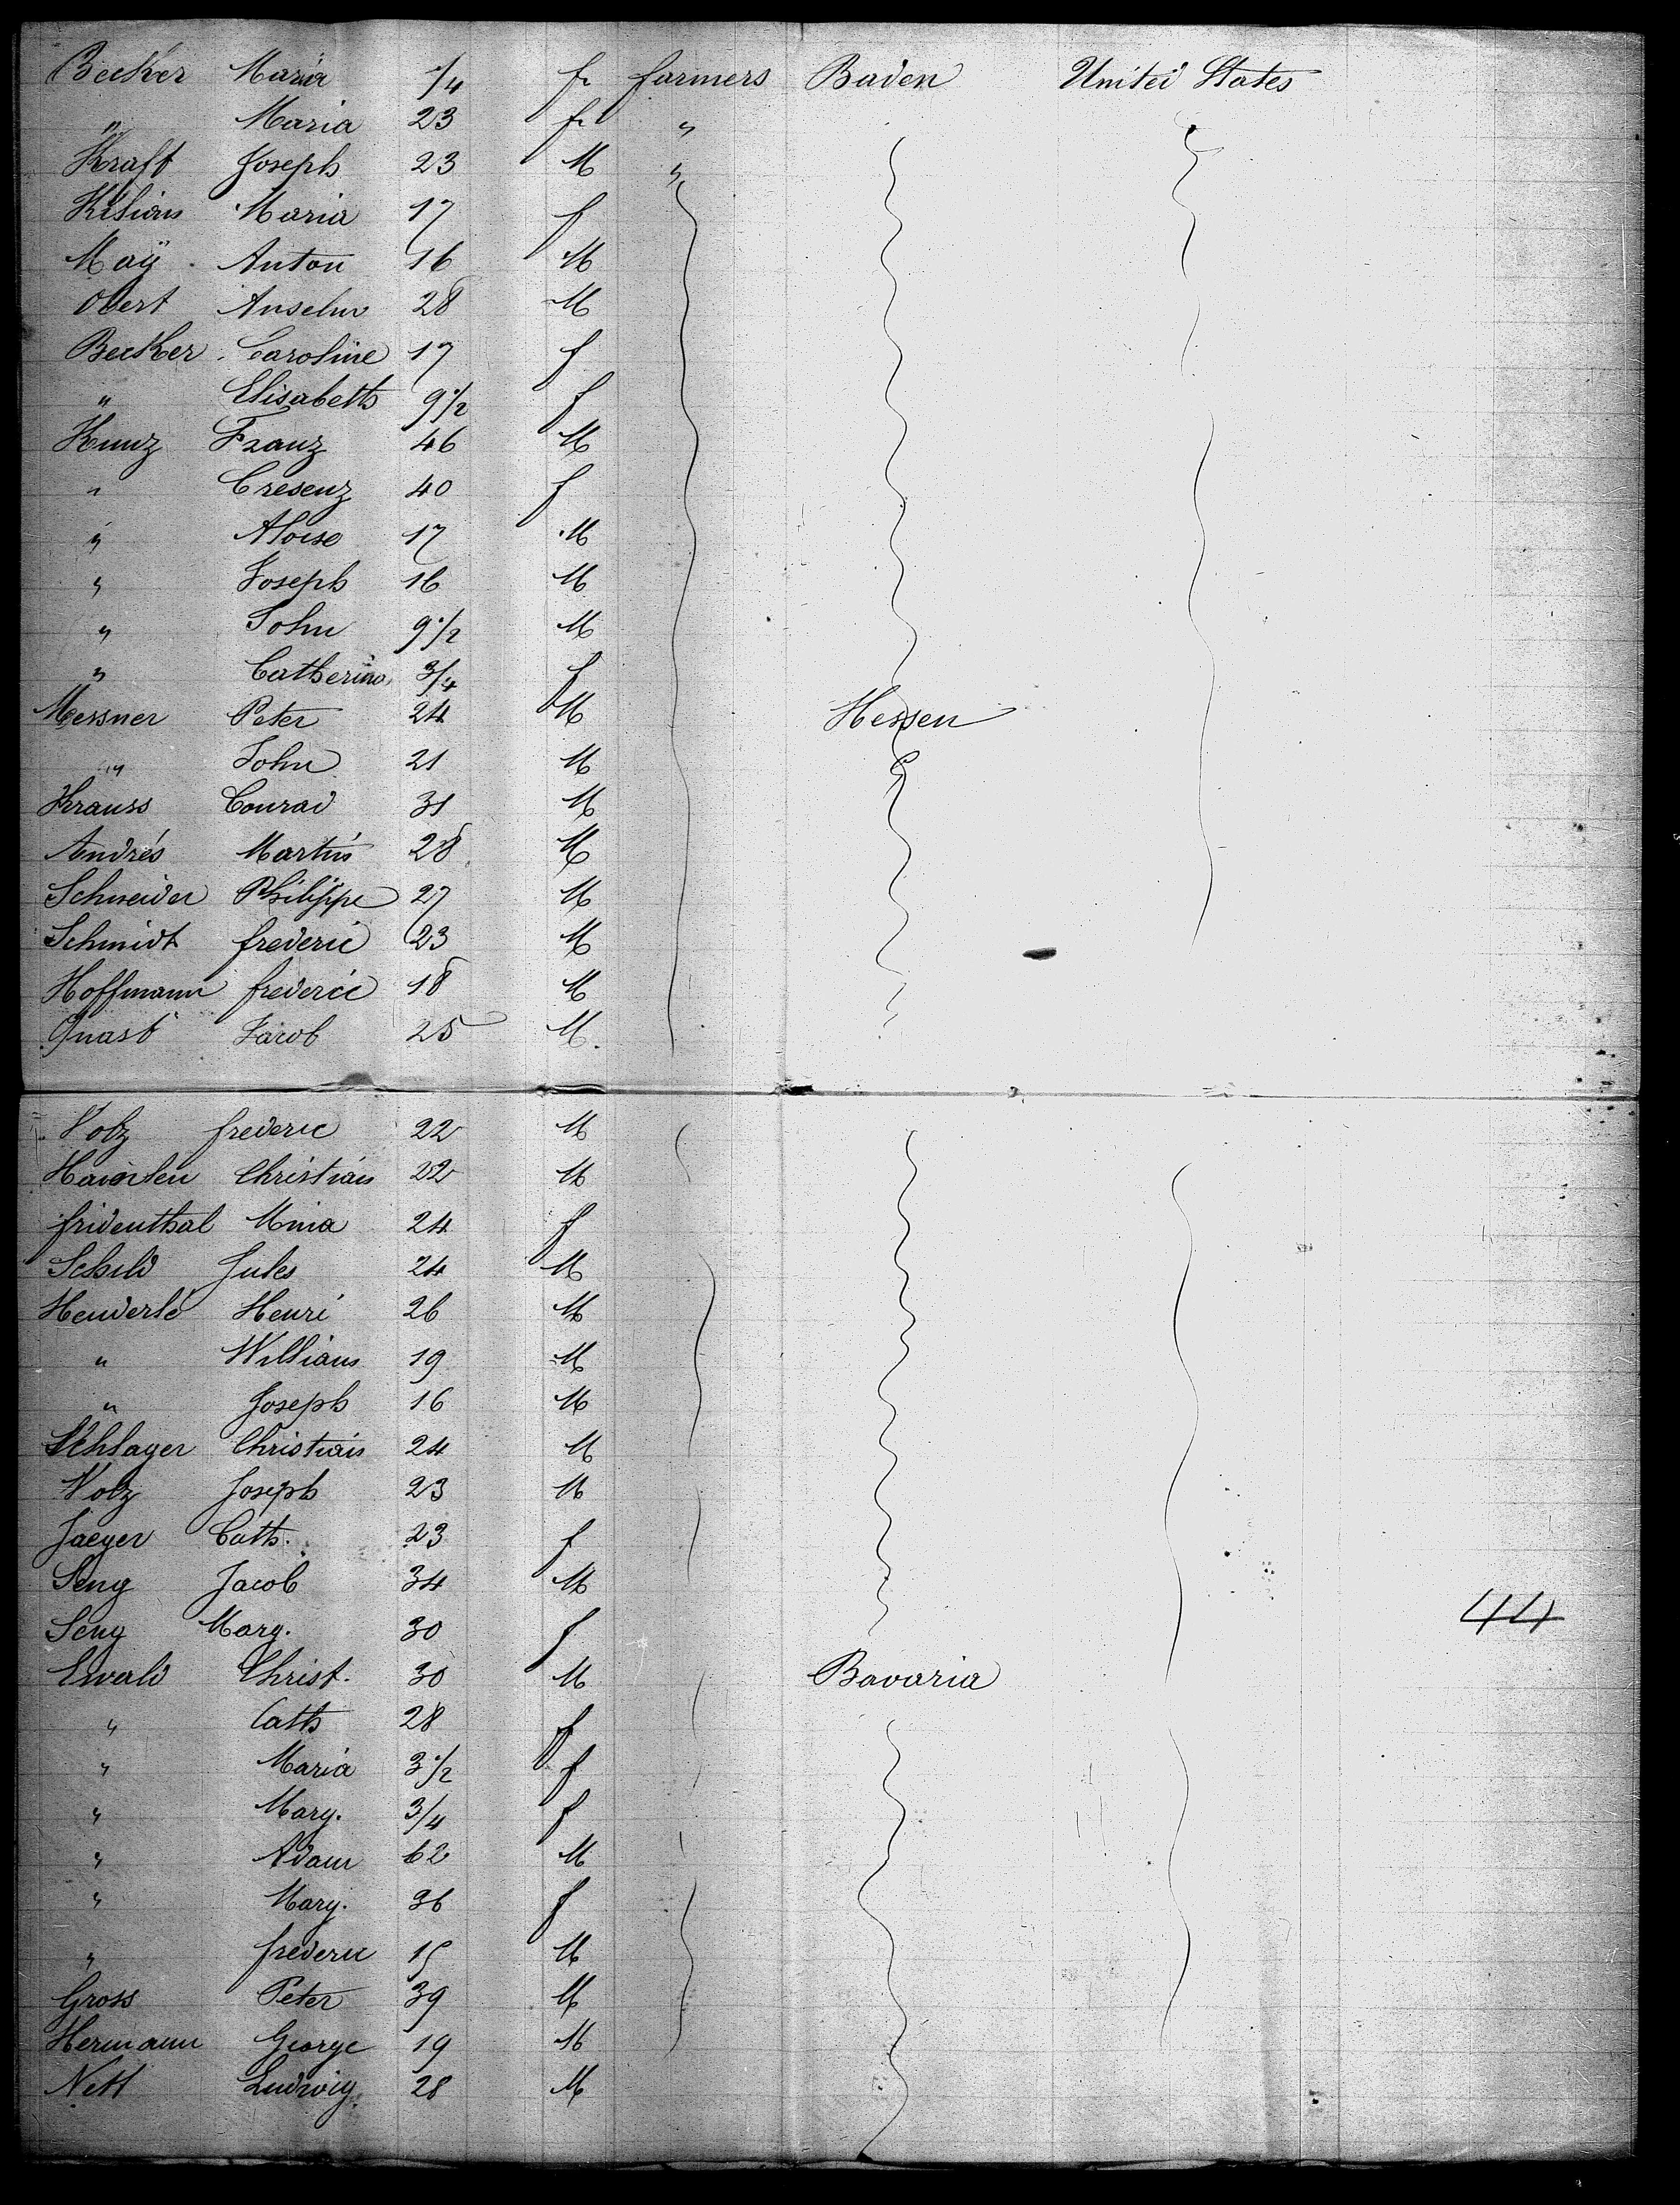 Becker Maria 1/4 f farmers Baden United States
" Maria 23 f "
Kraft Joseph 23 M "
Kilian Maria 17 f
Maÿ Anton 16 M
Obert Anselm 28 M
Becker Caroline 17 f
" Elisabeth 9 1/2 f
Kunz Franz 46 M
" Cresenz 40 f
" Aloise 17 M
" Joseph 16 M
" John 9 1/2 M
" Catherina 3/4 f
Messner Peter 24 M Hessen
" John 21 M
Krauss Conrad 31 M
Andrés Martin 28 M
Schneider Philippe 27 M
Schmidt frederic 23 M
Hoffmann frederic 18 M
Quast Jacob 25 M
Volz frederic 22 M
Christian 22 M
fridenthal Mina 24 f
Schild Jules 24 M
Henderlé Henri 26 M
" William 19 M
" Joseph 16 M
Schlager Christian 24 M
Volz Joseph 23 M
Jaeger Cath. 23 f
Seng Jacob 34 M
Seng Marg. 30 f 44
Ewald Christ. 30 M Bavaria
" Cath 28 f
" Maria 3 1/2 f
" Marg. 3/4 f
" Adam 62 M
" Marg. 36 f
" frederic 15 M
Gross Peter 39 M
Hermann George 19 M
Nett Ludwig 28 M